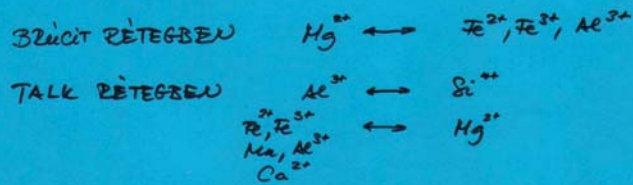 BRUCIT RÉTEGBEN Mg²⁺ ↔ Fe²⁺, Fe³⁺, Al³⁺
TALK RÉTEGBEN Al³⁺ ↔ Si⁴⁺
Fe²⁺, Fe³⁺ ↔ Mg²⁺
Mn, Al³⁺
Ca²⁺